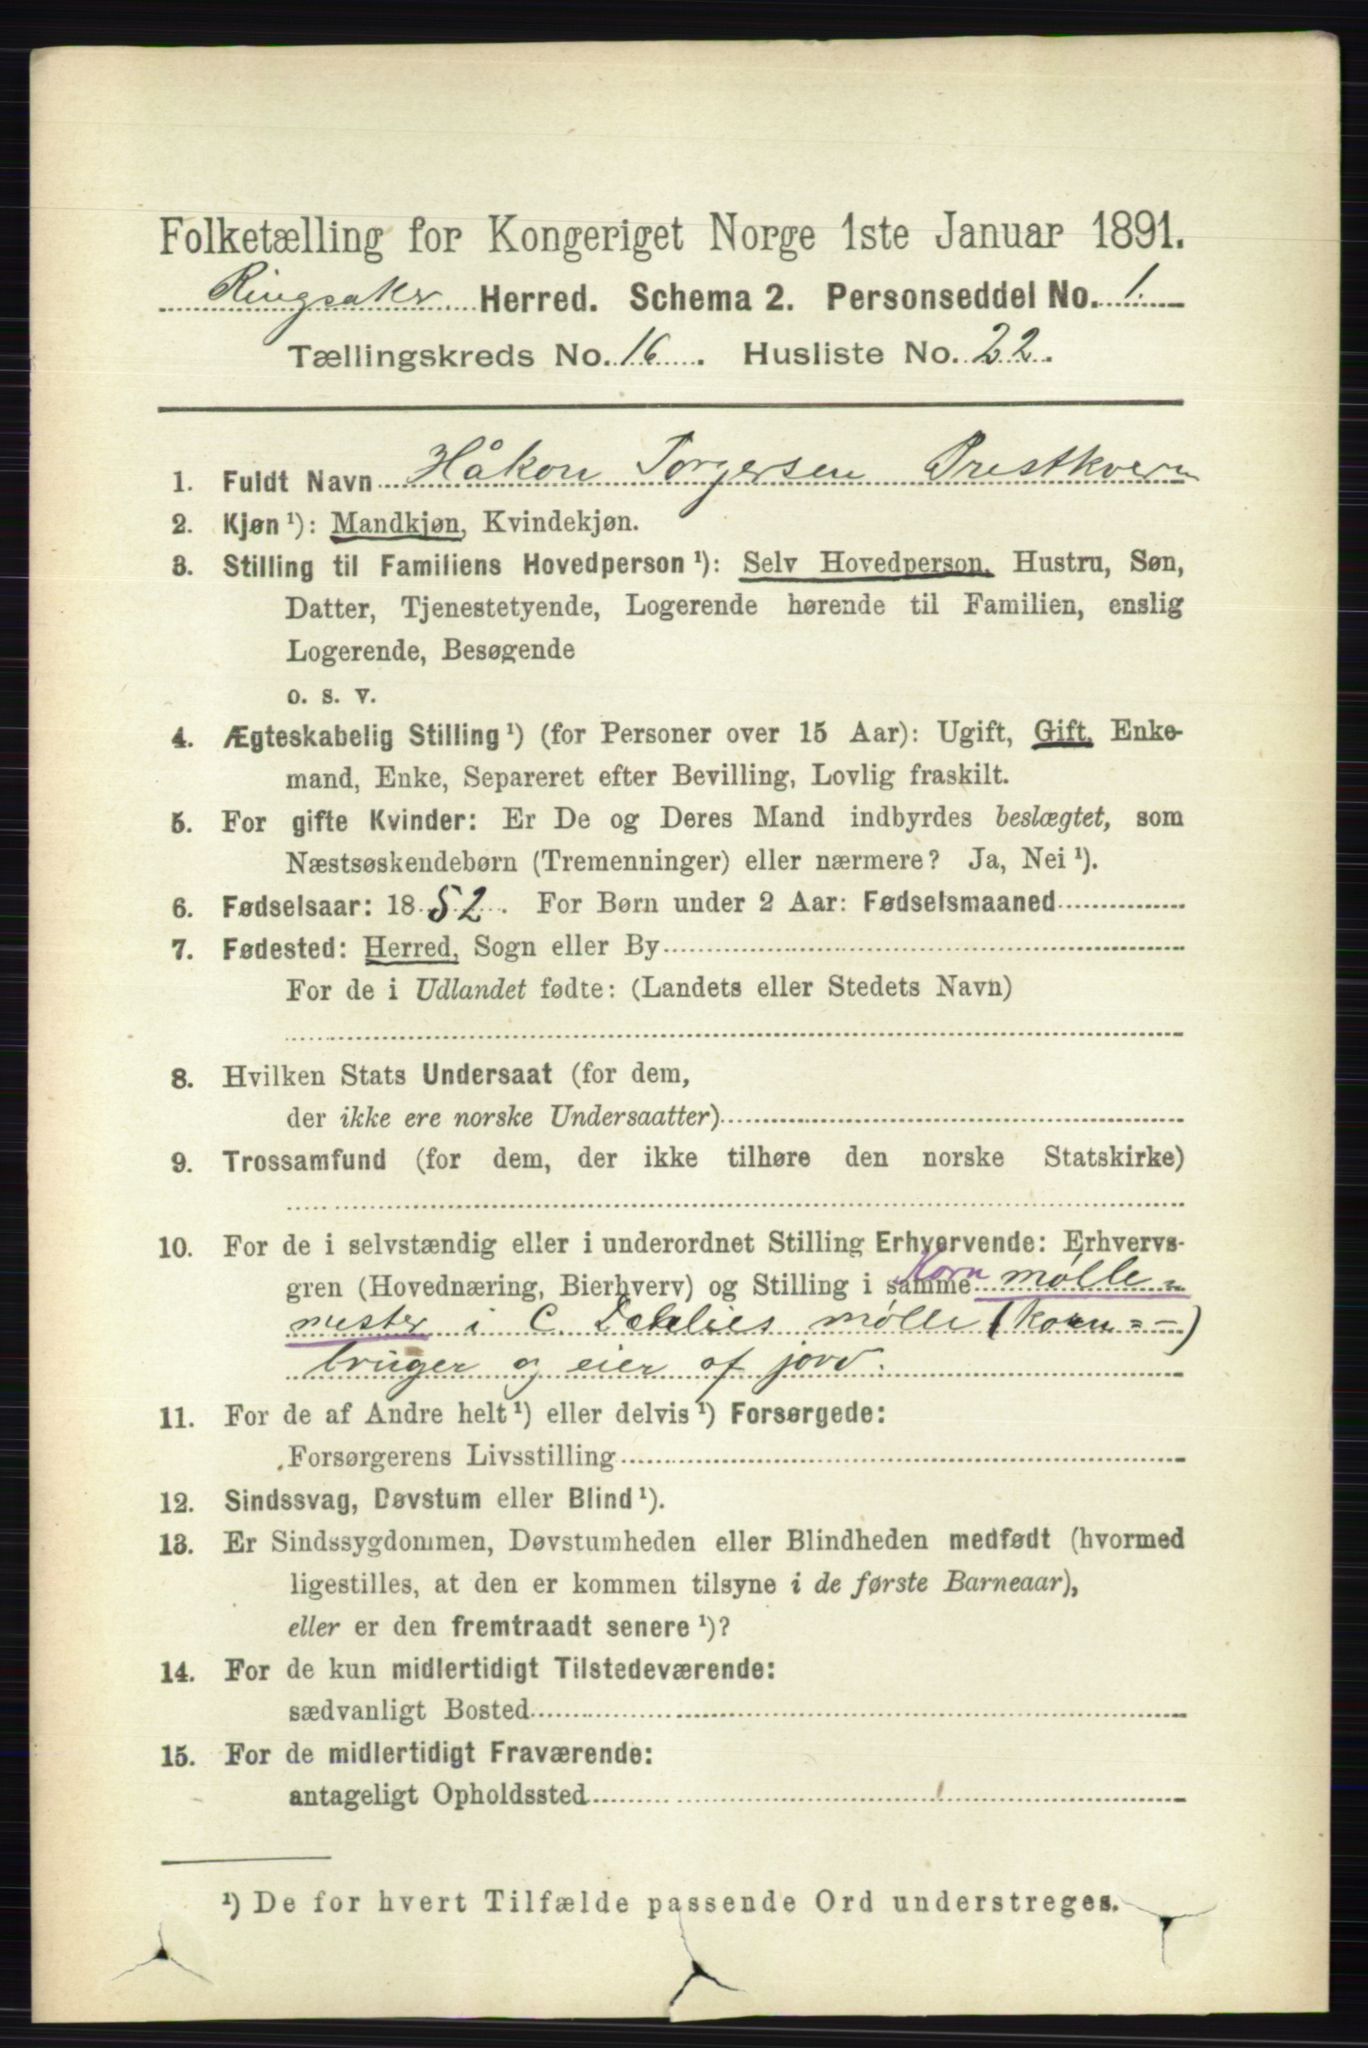 Folketælling for Kongeriget Norge 1ste Januar 1891.
Ringsaker Herred. Schema 2. Personseddel No. 1.
Tællingskreds No. 16. Husliste No. 22.
1. Fuldt Navn Håkon Torgersen Prestkvern
2. Kjøn ¹): Mandkjøn, Kvindekjøn.
3. Stilling til Familiens Hovedperson ¹): Selv Hovedperson, Hustru, Søn,
Datter, Tjenestetyende, Logerende hørende til Familien, enslig
Logerende, Besøgende
o. s. v.
4. Ægteskabelig Stilling ¹) (for Personer over 15 Aar): Ugift, Gift, Enke-
mand, Enke, Separeret efter Bevilling, Lovlig fraskilt.
5. For gifte Kvinder: Er De og Deres Mand indbyrdes beslægtet, som
Næstsøskendebørn (Tremenninger) eller nærmere? Ja, Nei ¹).
6. Fødselsaar: 1852. For Børn under 2 Aar: Fødselsmaaned
7. Fødested: Herred, Sogn eller By
For de i Udlandet fødte: (Landets eller Stedets Navn)
8. Hvilken Stats Undersaat (for dem,
der ikke ere norske Undersaatter)
9. Trossamfund (for dem, der ikke tilhøre den norske Statskirke)
10. For de i selvstændig eller i underordnet Stilling Erhvervende: Erhvervs-
gren (Hovednæring, Bierhverv) og Stilling i samme Korn mølle=
mester i C. Dæhlies mølle (korn=-)
bruger og eier af jord.
11. For de af Andre helt ¹) eller delvis ¹) Forsørgede:
Forsørgerens Livsstilling
12. Sindssvag, Døvstum eller Blind ¹).
13. Er Sindssygdommen, Døvstumheden eller Blindheden medfødt (hvormed
ligestilles, at den er kommen tilsyne i de første Barneaar),
eller er den fremtraadt senere ¹)?
14. For de kun midlertidigt Tilstedeværende:
sædvanligt Bosted
15. For de midlertidigt Fraværende:
antageligt Opholdssted
¹) De for hvert Tilfælde passende Ord understreges.